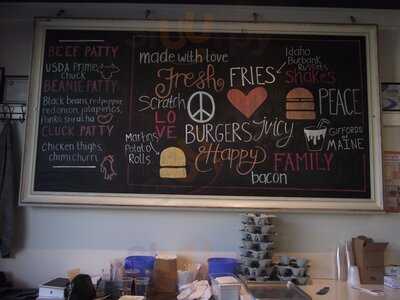 BEEF PATTY
USDA Prime
Chuck
BEANIE PATTY
Black beans, red pepper
red onion, jalapenos,
Panko, sriracha
CLUCK PATTY
Chicken thighs,
chimichurri
made with love
Fresh
Scratch
LOVE
Martin's
Potato
Rolls
FRIES
Idaho
Burbank
Russets
Shakes
PEACE
BURGERS
Juicy
Happy
FAMILY
bacon
GIFFORDS
of
MAINE